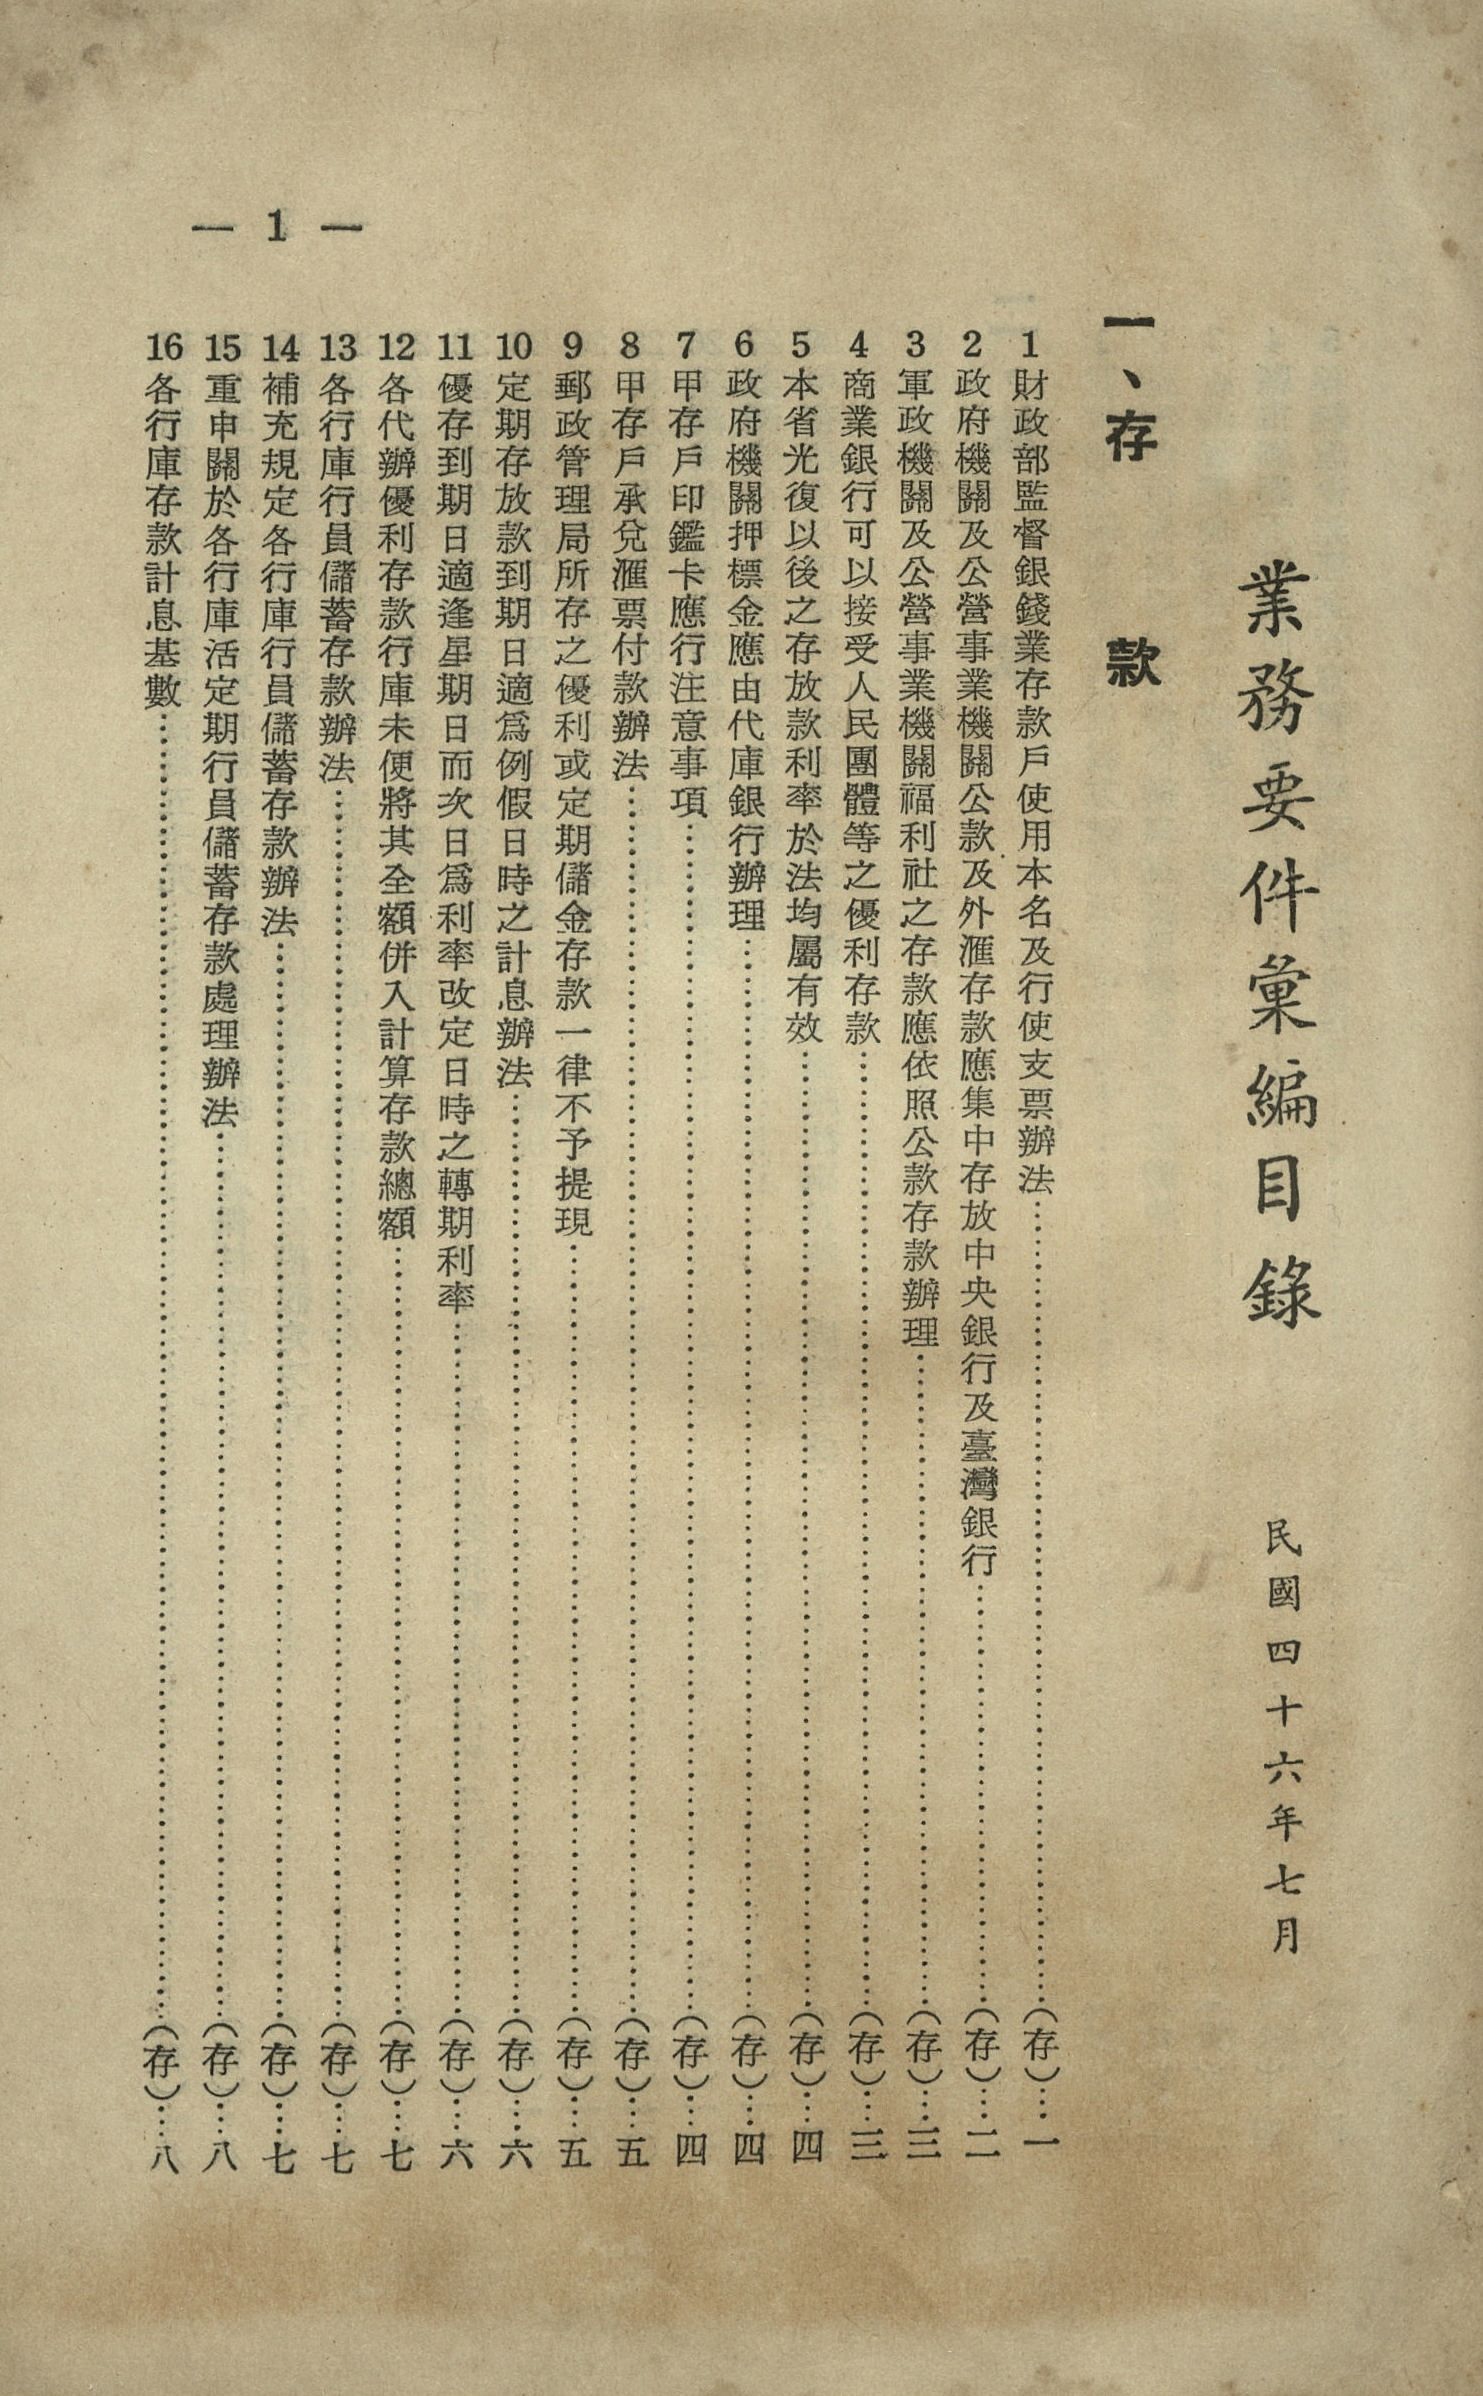 業務要件彙編目錄　民國四十六年七月
一、存　款
1 財政部監督銀錢業存款戶使用本名及行使支票辦法……(存)……一
2 政府機關及公營事業機關公款及外滙存款應集中存放中央銀行及臺灣銀行……(存)……二
3 軍政機關及公營事業機關福利社之存款應依照公款存款辦理……(存)……三
4 商業銀行可以接受人民團體等之優利存款……(存)……三
5 本省光復以後之存放款利率於法均屬有效……(存)……四
6 政府機關押標金應由代庫銀行辦理……(存)……四
7 甲存戶印鑑卡應行注意事項……(存)……四
8 甲存戶承兌滙票付款辦法……(存)……五
9 郵政管理局所存之優利或定期儲金存款一律不予提現……(存)……五
10 定期存放款到期日適爲例假日時之計息辦法……(存)……六
11 優存到期日適逢星期日而次日爲利率改定日時之轉期利率……(存)……六
12 各代辦優利存款行庫未便將其全額併入計算存款總額……(存)……七
13 各行庫行員儲蓄存款辦法……(存)……七
14 補充規定各行庫行員儲蓄存款辦法……(存)……七
15 重申關於各行庫活定期行員儲蓄存款處理辦法……(存)……八
16 各行庫存款計息基數……(存)……八
— 1 —